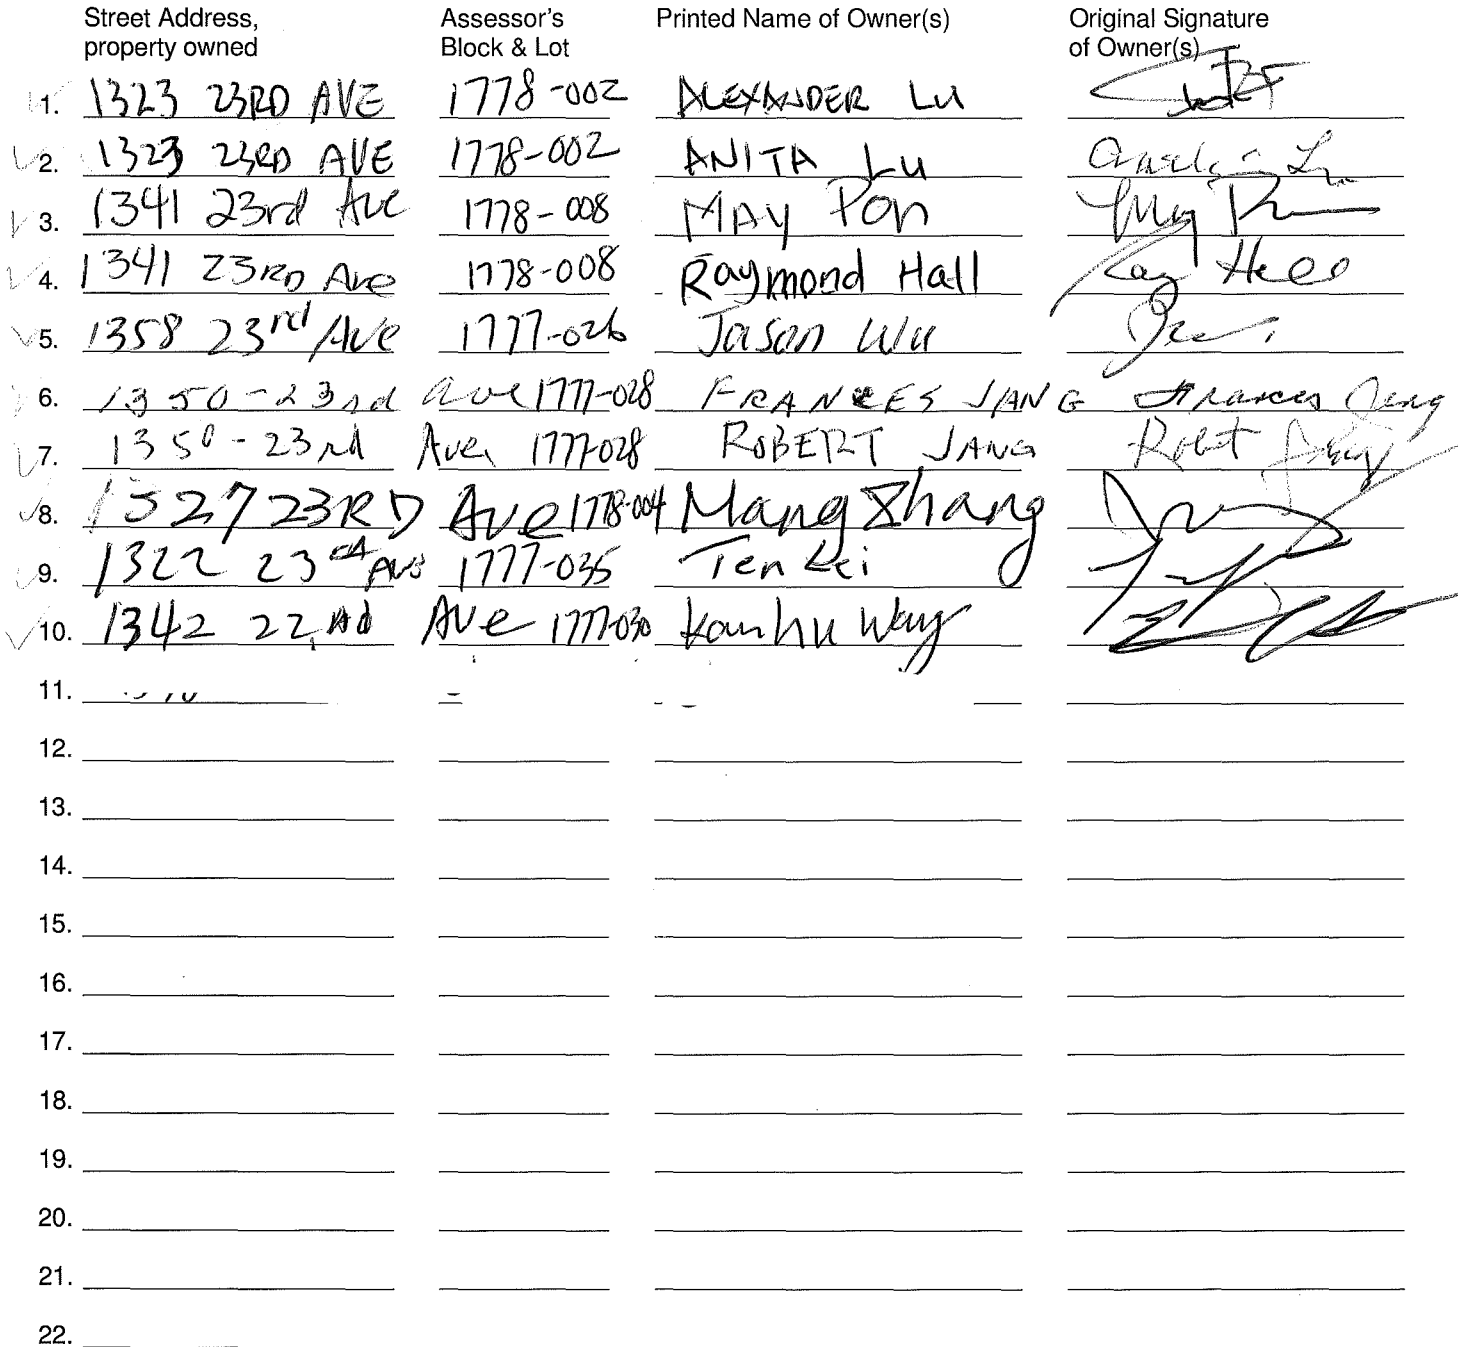 Street Address, property owned Assessor's Block & Lot Printed Name of Owner(s) Original Signature of Owner(s)
1. 1323 23RD AVE 1778-002 ALEXANDER LU
2. 1323 23RD AVE 1778-002 ANITA LU
3. 1341 23rd Ave 1778-008 MAY PON
4. 1341 23RD Ave 1778-008 Raymond Hall Ray Hall
5. 1358 23rd Ave 1777-026 Jason Wu
6. 1350-23rd Ave 1777-028 FRANCES JANG Frances Jang
7. 1350-23rd Ave 1777-028 ROBERT JANG Robert Jang
8. 1327 23RD Ave 1778-004 Mang Zhang
9. 1322 23rd Ave 1777-035 Ten Lei
10. 1342 22nd Ave 1777-030
11.
12.
13.
14.
15.
16.
17.
18.
19.
20.
21.
22.